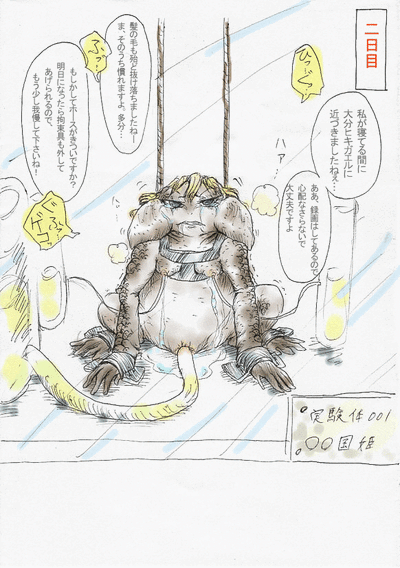 二日目
ひっ…ぐっ…
私が寝てる間に
大分ヒキガエルに
近づきましたねぇ…
ああ、録画はしてあるので
心配なさらないで
大丈夫ですよ
ハァ…
髪の毛も殆ど抜け落ちましたねー
ま、そのうち慣れますよ。多分…
ふっ…!
もしかしてホースがきついですか?
明日になったら拘束具も外して
あげられるので、
もう少し我慢して下さいね!
ゲコ
実験体001
〇〇国姫